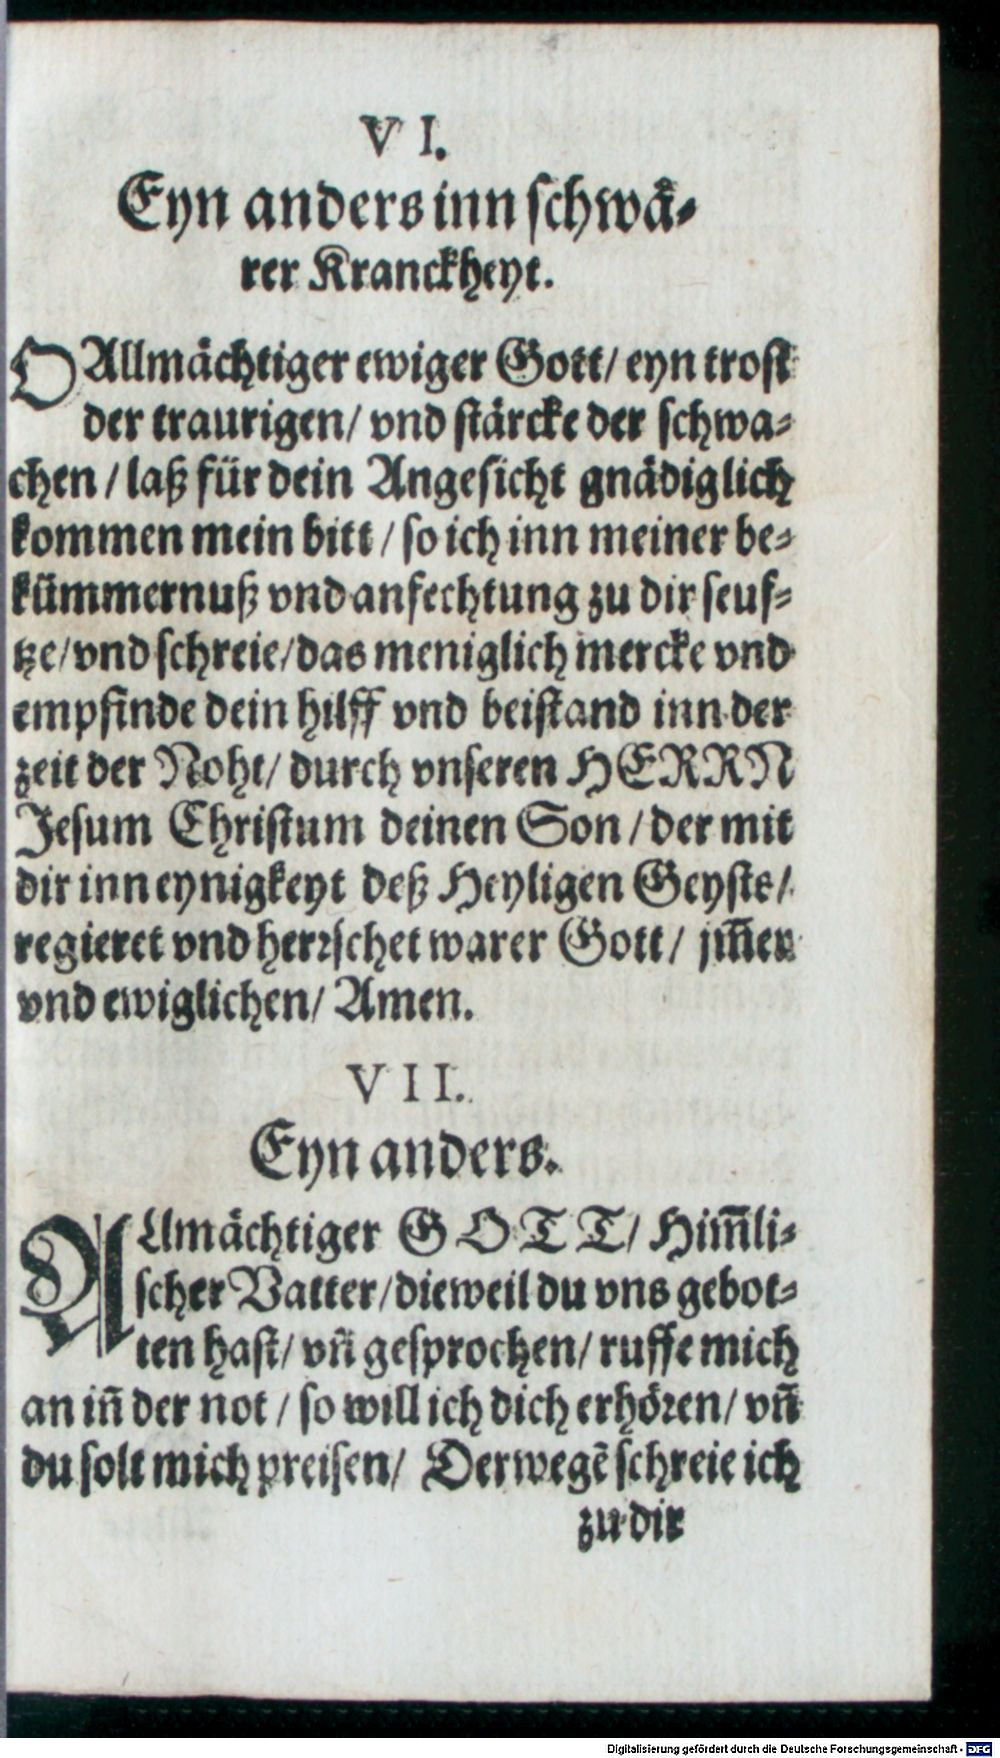 VI.
Eyn anders inn schwaͤ-
rer Kranckheyt.
O Allmaͤchtiger ewiger Gott/ eyn trost
der traurigen/ vnd staͤrcke der schwa-
chen/ laß fuͤr dein Angesicht gnaͤdiglich
kommen mein bitt/ so ich inn meiner be-
kuͤmmernuß vnd anfechtung zu dir seuf-
tze/ vnd schreie/ das meniglich mercke vnd
empfinde dein hilff vnd beistand inn der
zeit der Noht/ durch vnseren HERRN
Jesum Christum deinen Son/ der mit
dir inn eynigkeyt deß Heyligen Geysts/
regieret vnd herrschet warer Gott/ jm̃er
vnd ewiglichen/ Amen.
VII.
Eyn anders.
Allmaͤchtiger GOTT/ Him̃li-
scher Vatter/ dieweil du vns gebot-
ten hast/ vñ gesprochen/ ruffe mich
an iñ der not/ so will ich dich erhoͤren/ vñ
du solt mich preisen/ Derwegẽ schreie ich
zu dir
Digitalisierung gefördert durch die Deutsche Forschungsgemeinschaft - DFG